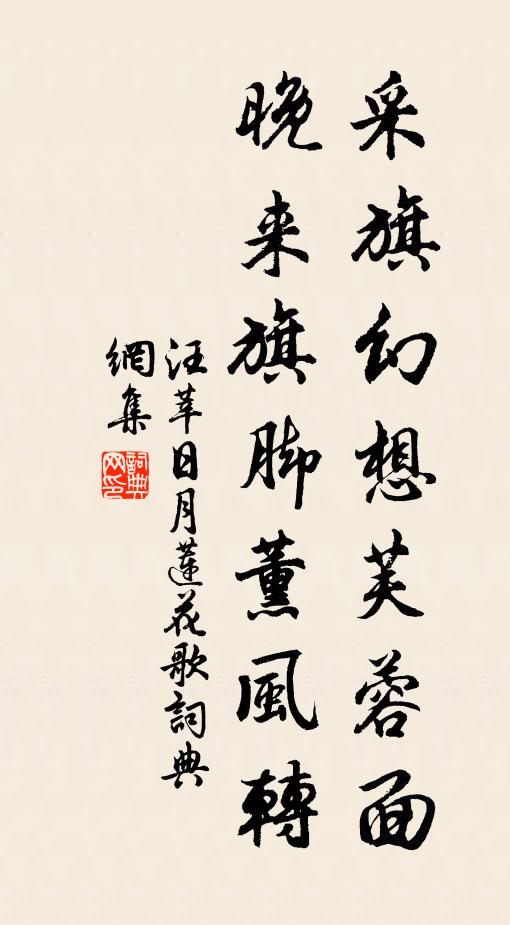 采旗幻想芙蓉面
晚来旗脚薰風轉
汪莘日月蓮花歌詞典
網集
詞典網印